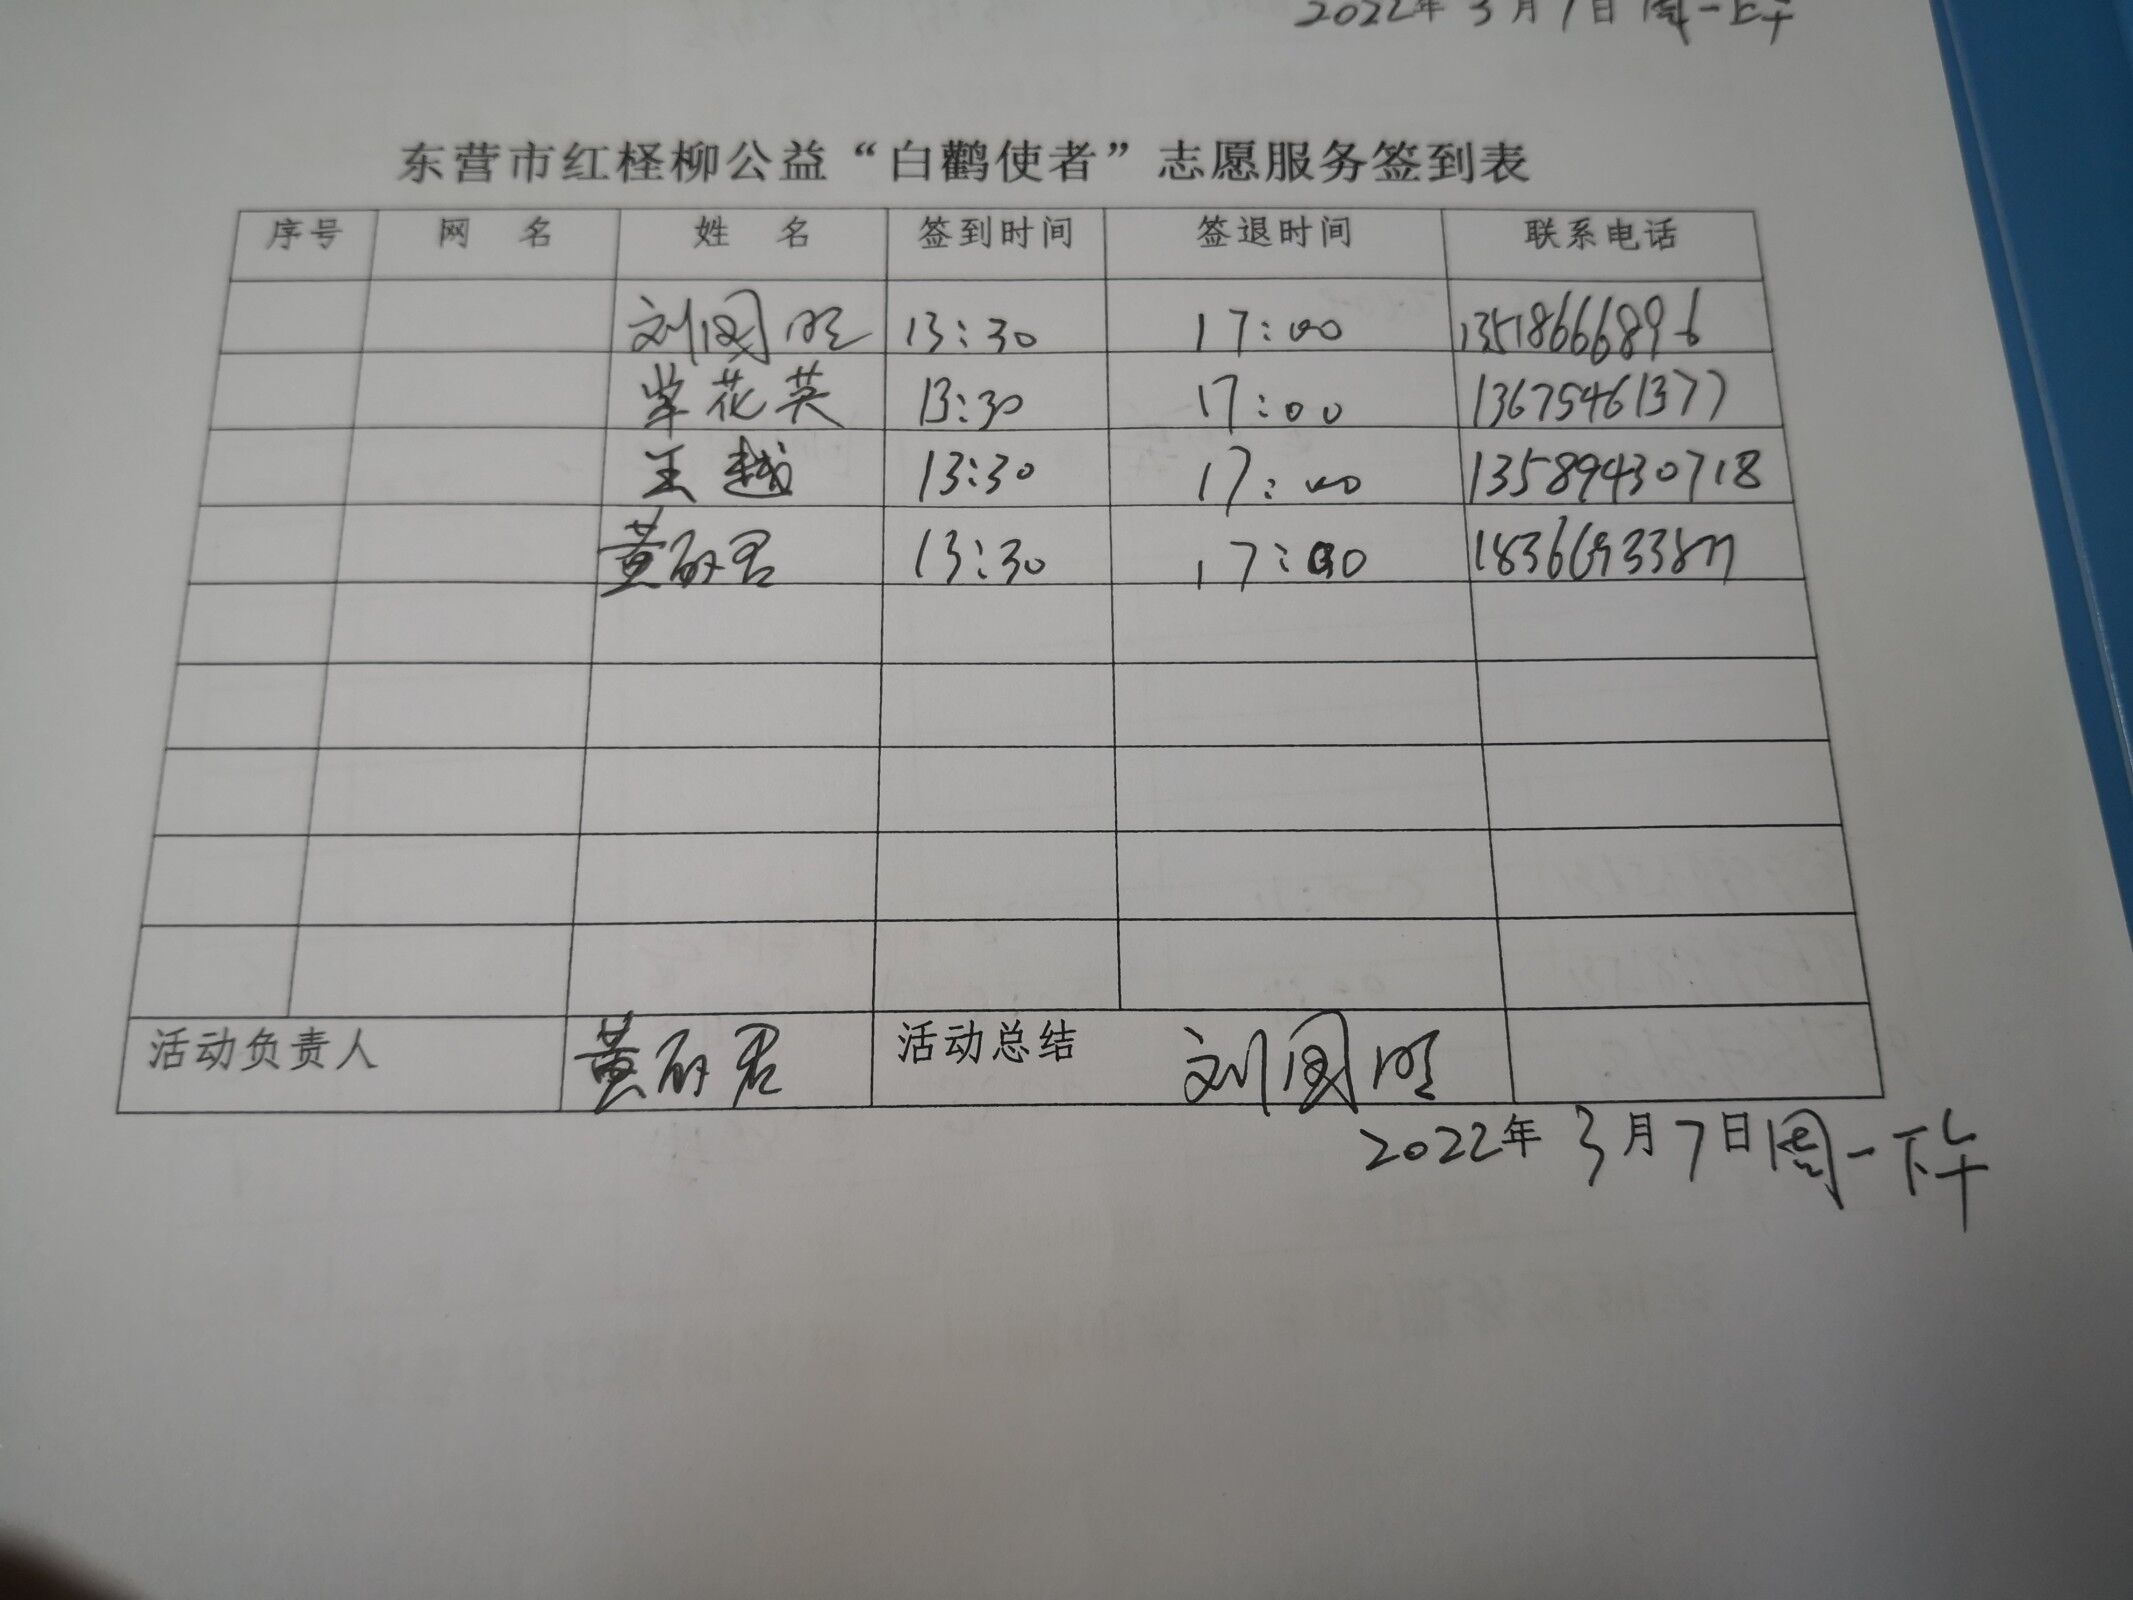 2022年3月7日周一上午
东营市红柽柳公益“白鹳使者”志愿服务签到表
序号 网 名 姓 名 签到时间 签退时间 联系电话
刘国旺 13:30 17:00 13518666896
花英 13:30 17:00 13675461377
王越 13:30 17:00 13589430718
黄丽君 13:30 17:00
活动负责人 黄丽君 活动总结 刘国旺
2022年3月7日周一下午